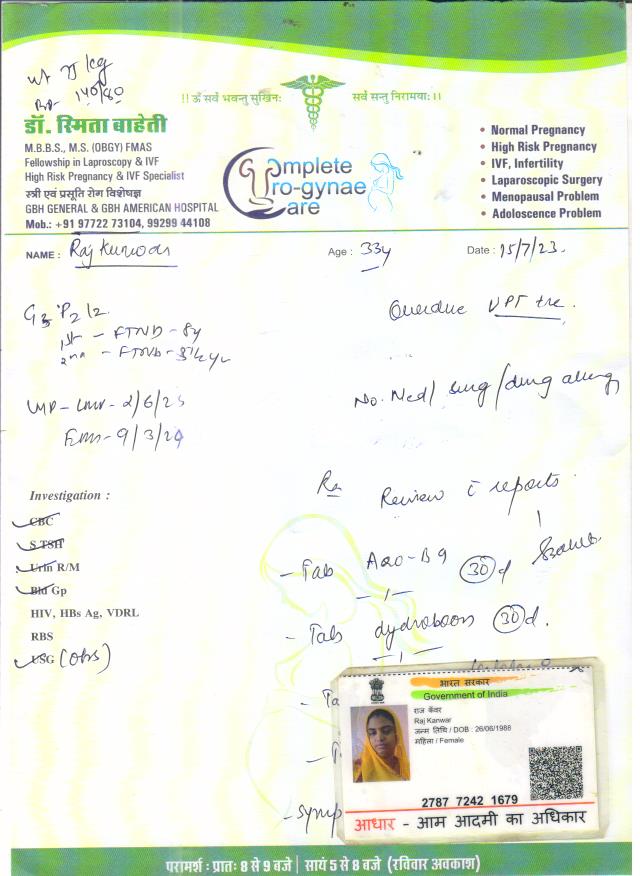 wt 75 kg
BP- 140/80
!! ॐ सर्वे भवन्तु सुखिनः सर्वे सन्तु निरामयाः ।।
डॉ. स्मिता बाहेती
M.B.B.S., M.S. (OBGY) FMAS
Fellowship in Laproscopy & IVF
High Risk Pregnancy & IVF Specialist
स्त्री एवं प्रसूति रोग विशेषज्ञ
GBH GENERAL & GBH AMERICAN HOSPITAL
Mob.: +91 97722 73104, 99299 44108
Complete
Uro-gynae
Care
• Normal Pregnancy
• High Risk Pregnancy
• IVF, Infertility
• Laparoscopic Surgery
• Menopausal Problem
• Adoloscence Problem
NAME : Raj Kunwar Age : 33y Date : 15/7/23.
G3 P2 L2
Overdue UPT +ve.
1st - FTND - 8y
2nd - FTND - 3½ yr
No. Med/ surg/drug allergy
LMP - 2/6/23
EDD - 9/3/24
Rx Review c reports
Investigation :
CBC
S.TSH
Urin R/M
Bld Gp
HIV, HBs Ag, VDRL
RBS
USG (Obs)
- Tab B9 30 d
- Tab dydroboon 30 d.
- Ta
- T
- symp
भारत सरकार
Government of India
राज कँवर
Raj Kanwar
जन्म तिथि / DOB : 26/06/1988
महिला / Female
2787 7242 1679
आधार - आम आदमी का अधिकार
परामर्श : प्रातः 8 से 9 बजे | सायं 5 से 8 बजे (रविवार अवकाश)